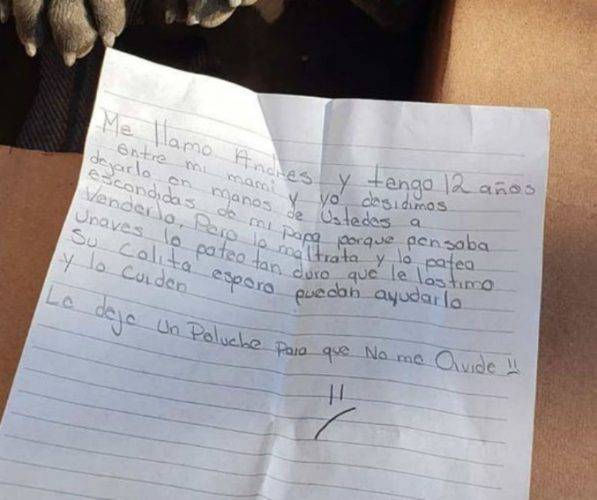 Me llamo Andres y tengo 12 años
entre mi mami y yo desidimos
dejarlo en manos de Ustedes a
escondidas de mi papa porque pensaba
Venderlo. Pero lo maltrata y lo patea
Unaves lo pateo tan duro que le lastimo
Su colita espero puedan ayudarlo
y lo Cuiden
Le deje Un Peluche Para que No me Olvide !!